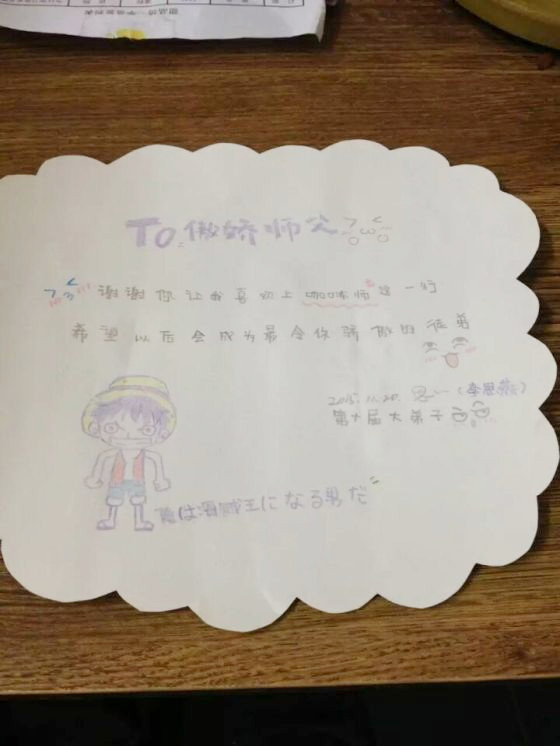 To 傲娇师父
谢谢你让我喜欢上咖啡师这一行
希望以后会成为最令你骄傲的徒弟
2015.11.20.
第十届大弟子
俺は海賊王になる男だ